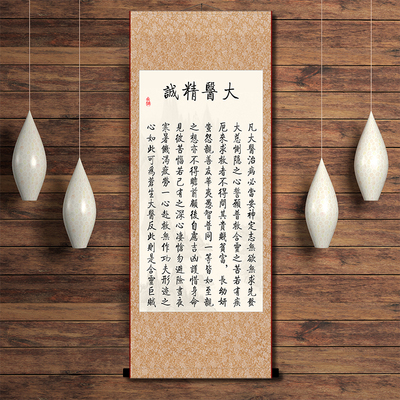 大醫精誠
凡大醫治病必當安神定志無欲無求先發
大慈惻隱之心誓願普救含靈之苦若有疾
厄來求救者不得問其貴賤貧富，長幼妍
蚩怨親善友華夷愚智普同一等皆如至親
之想亦不得瞻前顧後自慮吉凶護惜身命
見彼苦惱若己有之深心悽愴勿避險晝夜
寒暑饑渴疲勞一心赴救無作功夫形跡之
心如此可為蒼生大醫反此則是含靈巨賊